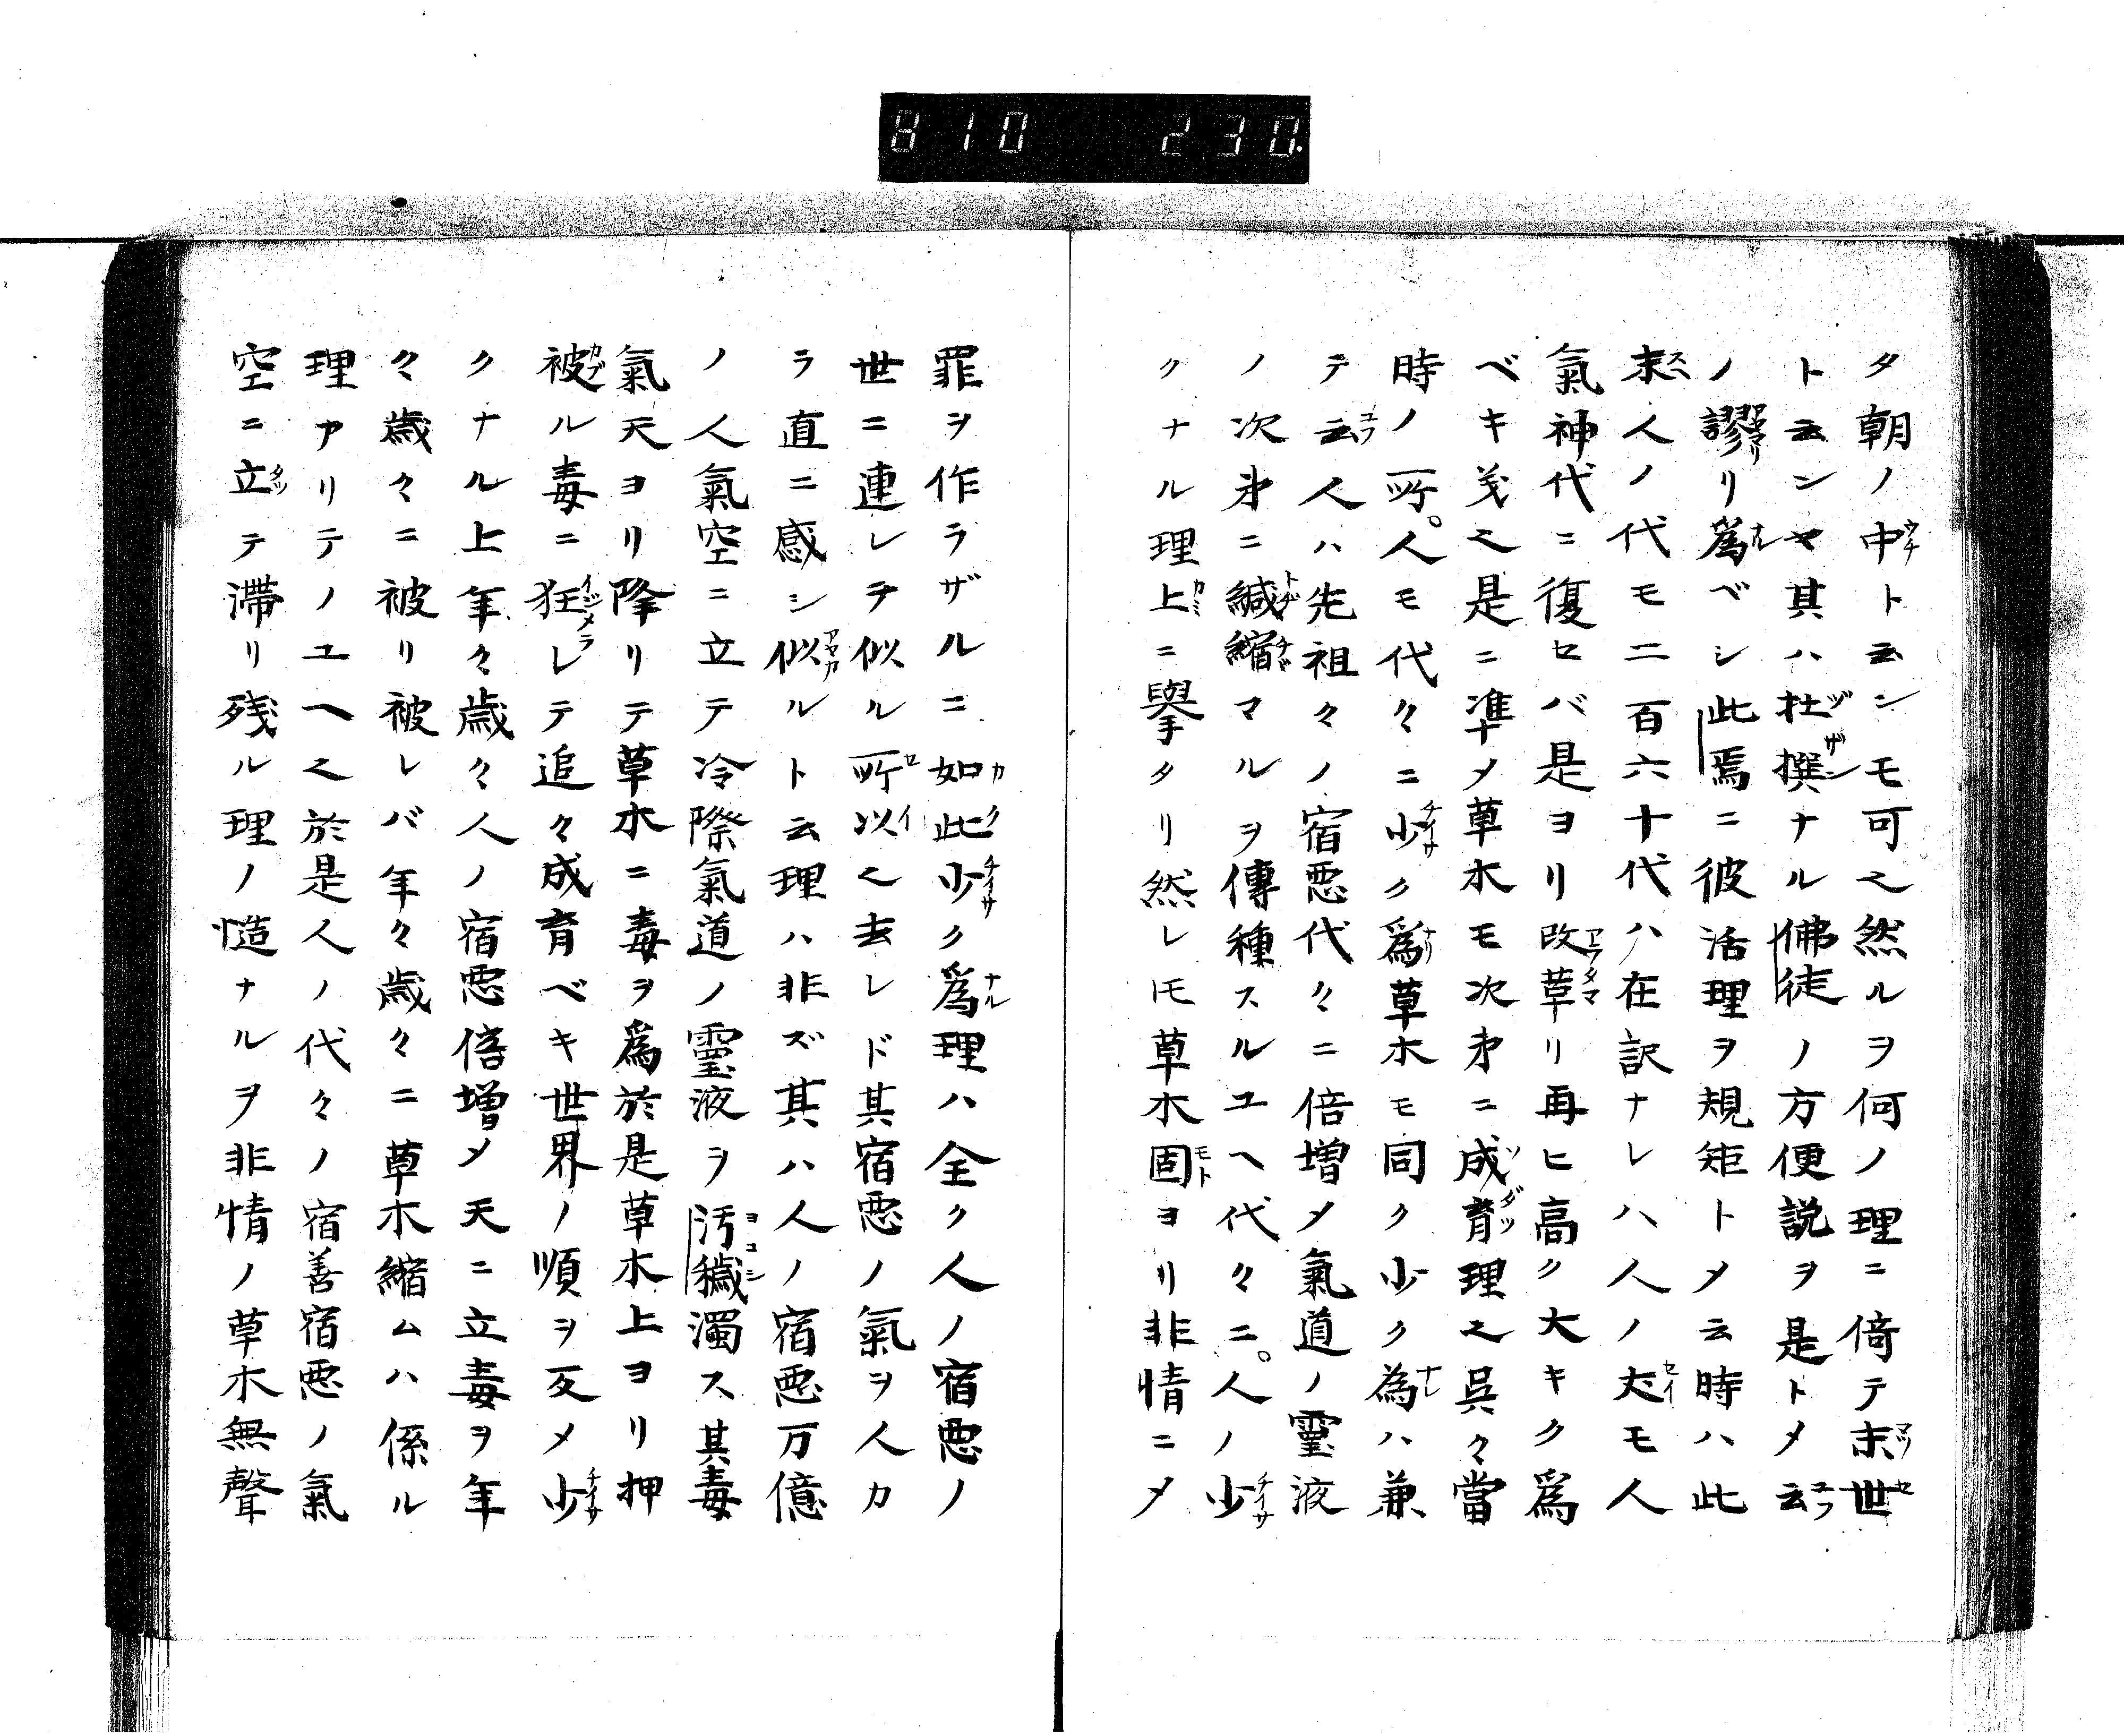 810 230.
タ朝ノ中トヱンモ可之然ルヲ何ノ理ニ倚テ末世
ト云ンヤ其ハ杜撰ナル佛徒ノ方便説ヲ是トメ云
ノ謬リ爲ベシ此焉ニ彼活理ヲ規矩トメ云時ハ此
末人ノ代モ二百六十代ハ在訳ナレハ人ノ丈モ人
氣神代ニ復セバ是ヨリ改革リ再ヒ高ク大キク爲
ベキ義之是ニ準メ草木モ次第ニ成育理之呉々當
時ノ所。人モ代々ニ少ク爲草木モ同ク少ク為ハ兼
テ云人ハ先祖々ノ宿悪代々ニ倍増メ氣道ノ靈液
ノ次第ニ緘縮マルヲ傳種スルユヘ代々ニ。人ノ少
クナル理上ニ擧タリ然レ𪜈草木固ヨリ非情ニメ
罪ヲ作ラザルニ如此少ク爲理ハ全ク人ノ宿悪ノ
世ニ連レヲ似ル所以之去レド其宿悪ノ氣ヲ人カ
ラ直ニ感シ似ルト云理ハ非ズ其ハ人ノ宿悪万億
ノ人氣空ニ立テ冷際氣道ノ靈液ヲ汚穢濁ス其毒
氣天ヨリ降リテ草木ニ毒ヲ爲於是草木上ヨリ押
被ル毒ニ狂レテ追々成育ベキ世界ノ順ヲ反メ少
クナル上年々歳々人ノ宿悪倍増メ天ニ立毒ヲ年
々歳々ニ被リ被レバ年々歳々ニ草木縮ムハ係ル
理アリテノユヘ之於是人ノ代々ノ宿善宿悪ノ氣
空ニ立テ滞リ残ル理ノ慥ナルヲ非情ノ草木無聲